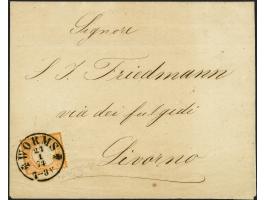 Signore
S. I. Friedmann
via dei fulgidi
Livorno
WORMS
27
1
74
7-8V.